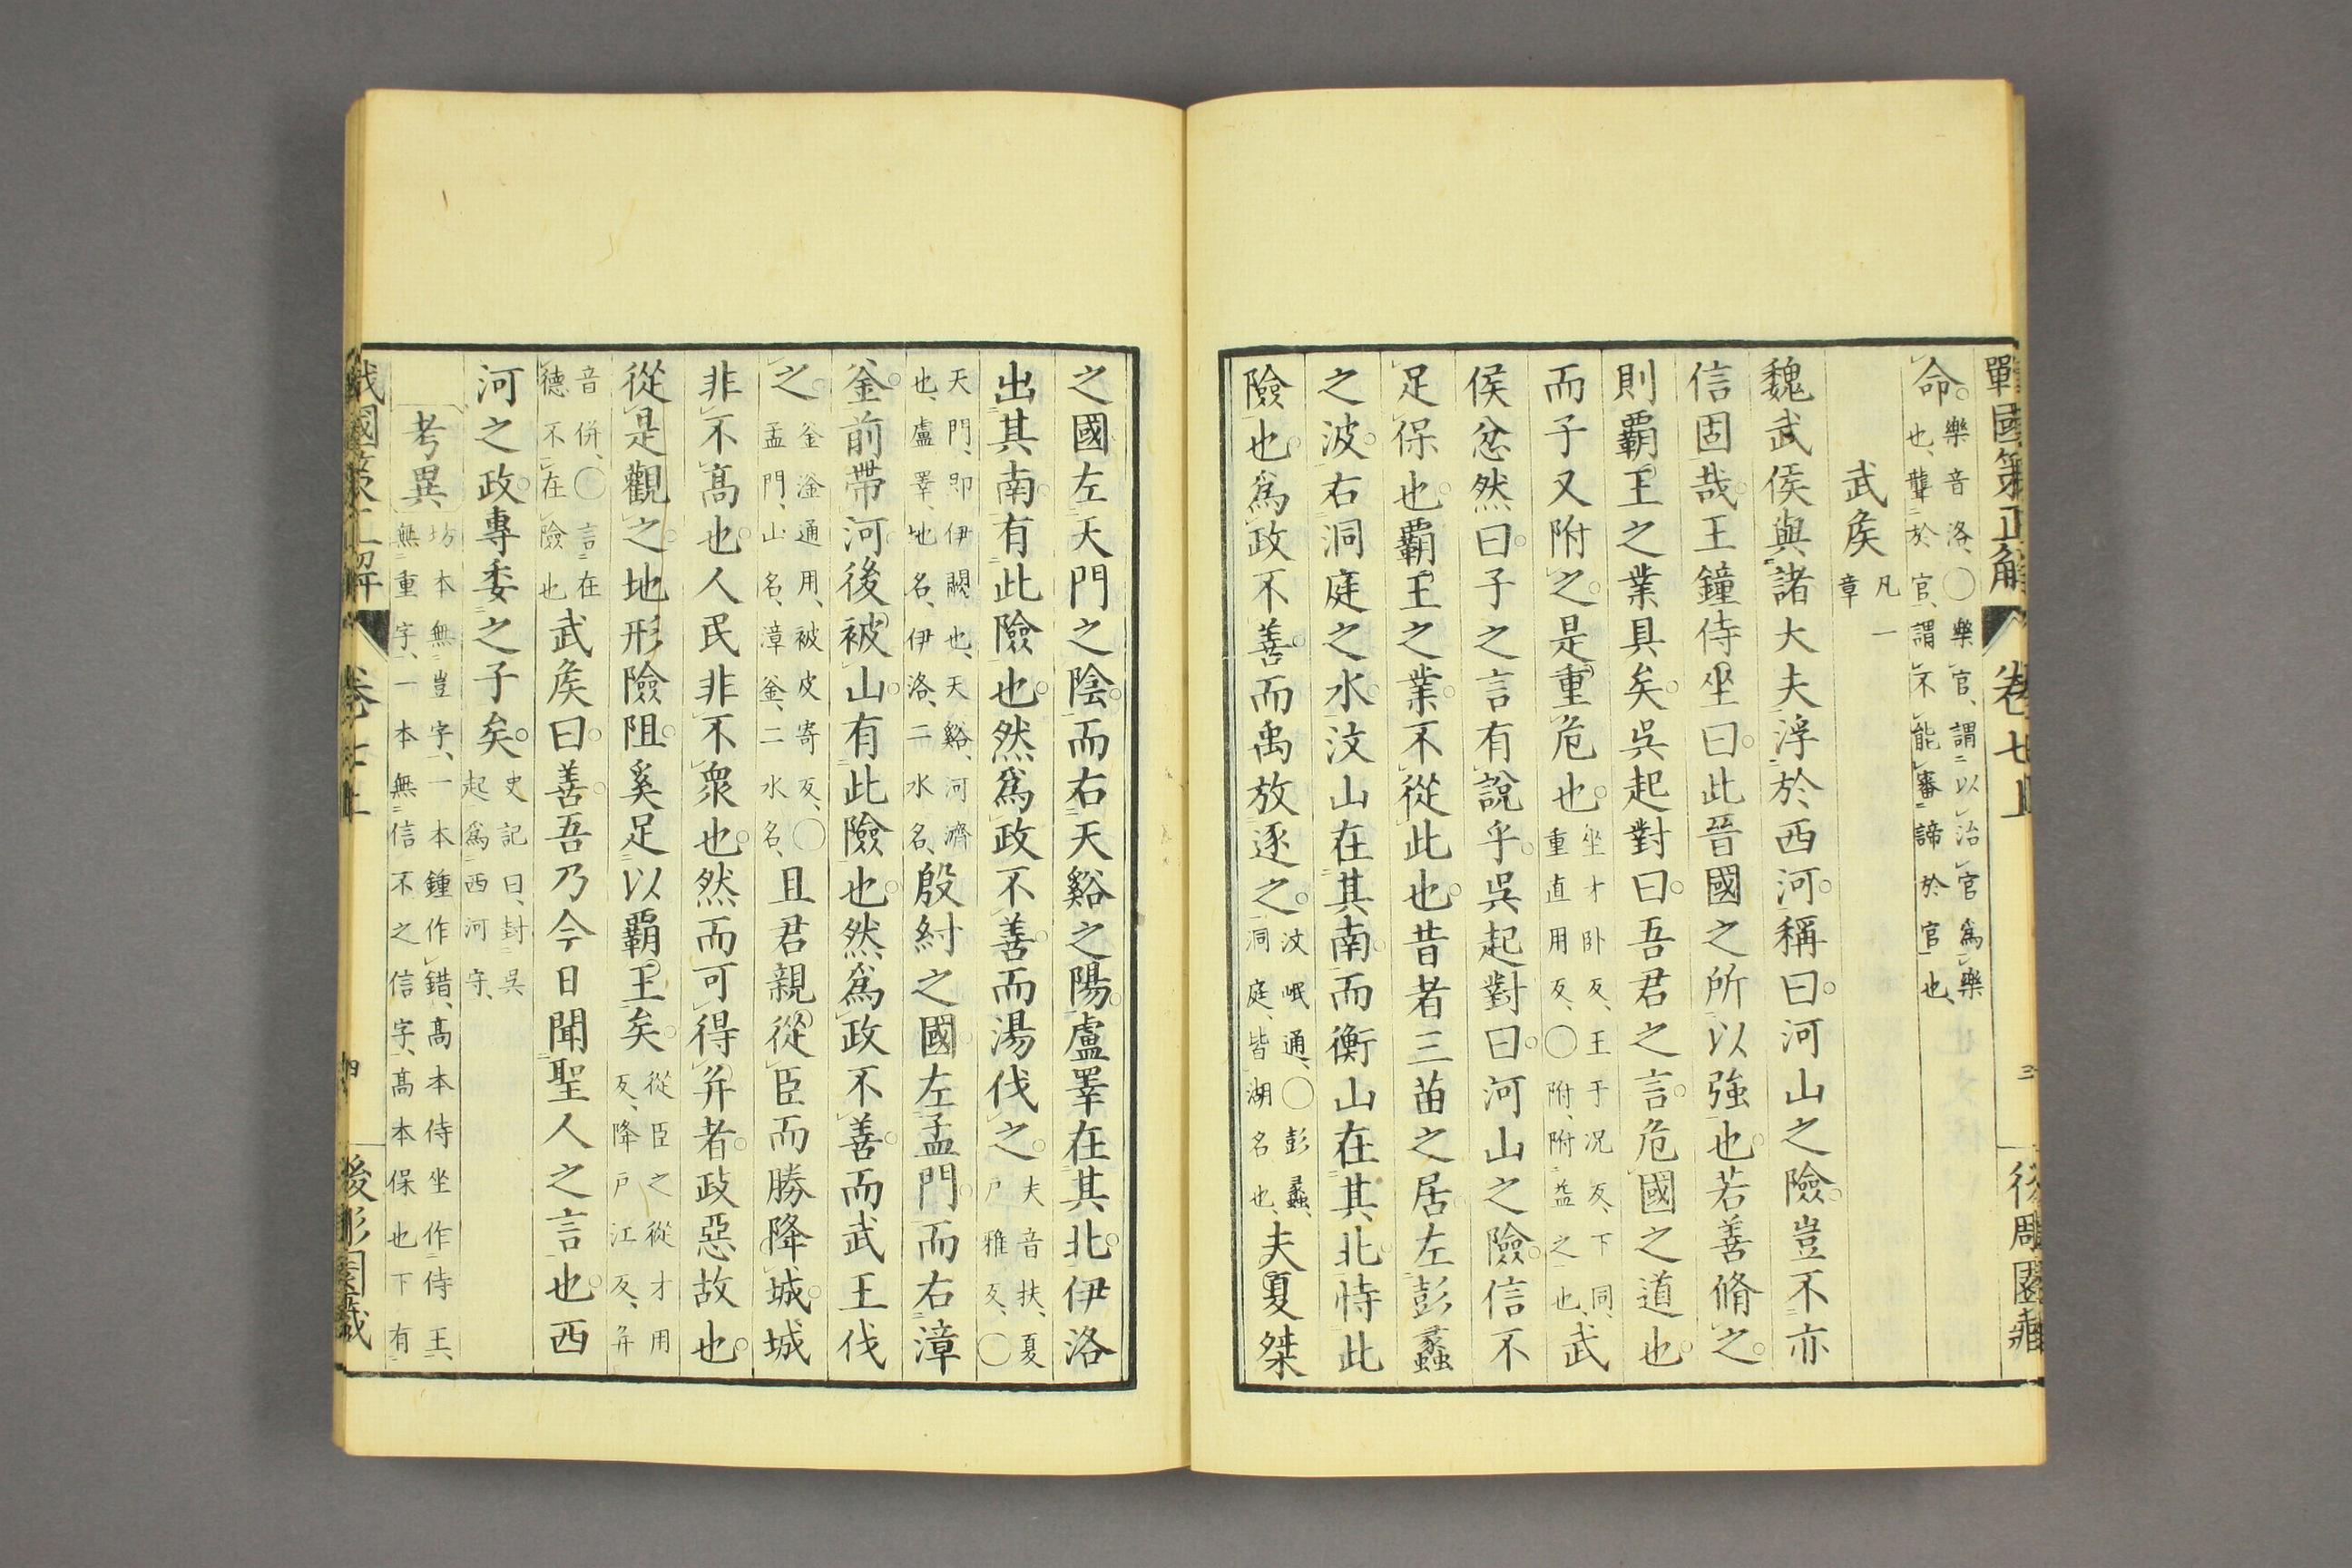 戰國策正解 卷七上 三 後凋園藏
命。樂音洛、〇樂官、謂以治官為樂也、聾於官、謂不能審諦於官也、
武矦凡一章
魏武侯與諸大夫浮於西河。稱曰。河山之險。豈不亦
信固哉。王鐘侍坐曰。此晉國之所以強也。若善脩之。
則霸王之業具矣。吳起對曰。吾君之言。危國之道也。
而子又附之。是重危也。坐才卧反、王于况反、下同、重直用反、〇附、附益之也、武
侯忿然曰。子之言有說乎。吳起對曰。河山之險。信不
足保也。霸王之業。不從此也。昔者三苗之居。左彭蠡
之波。右洞庭之水。汶山在其南。而衡山在其北。恃此
險也。爲政不善。而禹放逐之。汶岷通、〇彭蠡、洞庭、皆湖名也、夫夏桀
之國。左天門之陰。而右天谿之陽。盧睪在其北。伊洛
出其南。有此險也。然爲政不善。而湯伐之。夫音扶、夏戶雅反、〇
天門、即伊闕也、天谿、河濟也、盧睪、地名、伊洛、二水名、殷紂之國。左孟門。而右漳
釜。前帶河。後被山。有此險也。然爲政不善。而武王伐
之。釜滏通用、被皮寄反、〇孟門、山名、漳釜、二水名、且君親從臣而勝降城。城
非不高也。人民非不衆也。然而可得并者。政惡故也。
從是觀之。地形險阻。奚足以霸王矣。從臣之從才用反、降戶江反、并
音併、〇言在德不在險也武矦曰。善。吾乃今日聞聖人之言也。西
河之政。專委之子矣。史記曰、封吳起爲西河守、
考異坊本無豈字、一本鍾作錯、高本侍坐作侍王、無重字、一本無信不之信字、高本保也下有
戰國策正解 卷七上 四 後彫園藏